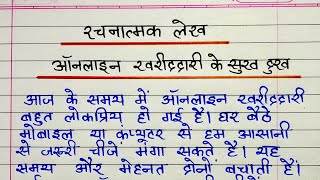 रचनात्मक लेख
ऑनलाइन खरीददारी के सुख दुख
आज के समय में ऑनलाइन खरीददारी
बहुत लोकप्रिय हो गई है। घर बैठे
मोबाइल या कंप्यूटर से हम आसानी
से जरूरी चीजें मंगा सकते हैं। यह
समय और मेहनत दोनों बचाती है।